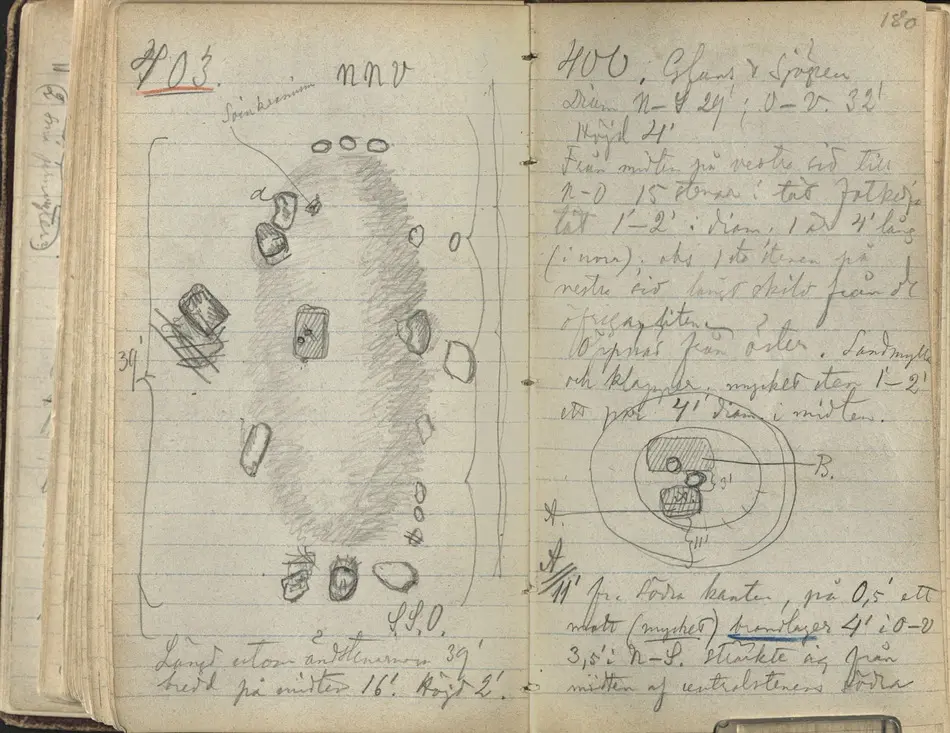 403.
nnv
a
39'
S.S.O.
Längd utom ändstenarna 39'
bredd på midten 16'. Höjd 2'.
180
400.
Diam N–S 29'; O–V. 32'
Höjd 4'
Från midten på vestra sid till
N–O 15 stenar i tät fotkedja
tät 1'–2' i diam. 1 är 4' lång
(i norr). obs 1sta stenen på
vestra sid långt skild från de
öfriga
Öppnad från öster. Sandmylla
och klapper, mycket sten 1'–2'
ett par 4' diam. i midten.
B.
3'
A.
11'
A
11' fr. södra kanten, på 0,5' ett
matt (mycket) brandlager 4' i O–V
3,5' i N–S. sträckte sig från
midten af centralstenens södra